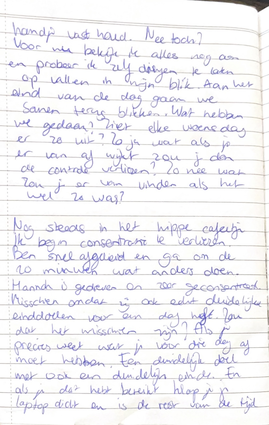 handje vast houd. Nee toch?
Voor nu bekijk ik alles nog aan
en probeer ik zelf dingen te laten
op vallen in mijn blik. Aan het
eind van de dag gaan we
samen terug blikken. Wat hebben
we gedaan? Ziet elke woensdag
er zo uit? Zo ja wat als je
er van af wijkt zou je dan
de controle verliezen? Zo nee wat
zou je er van vinden als het
wel zo was?
Nog steeds in het hippe cafeetje
Ik begin consentratie te verliezen
Ben snel afgeleid en ga om de
20 minuten wat anders doen.
Hannah is gedreven en zeer geconsentreerd.
Misschien omdat zij ook echt duidelijke
einddoelen voor een dag heeft. Zou
dat het misschien zijn? Als je
precies weet wat je voor die dag af
moet hebben. Een duidelijk doel
met ook een duidelijk einde. En
als je dat hebt bereikt klap je je
laptop dicht en is de rest van de tijd